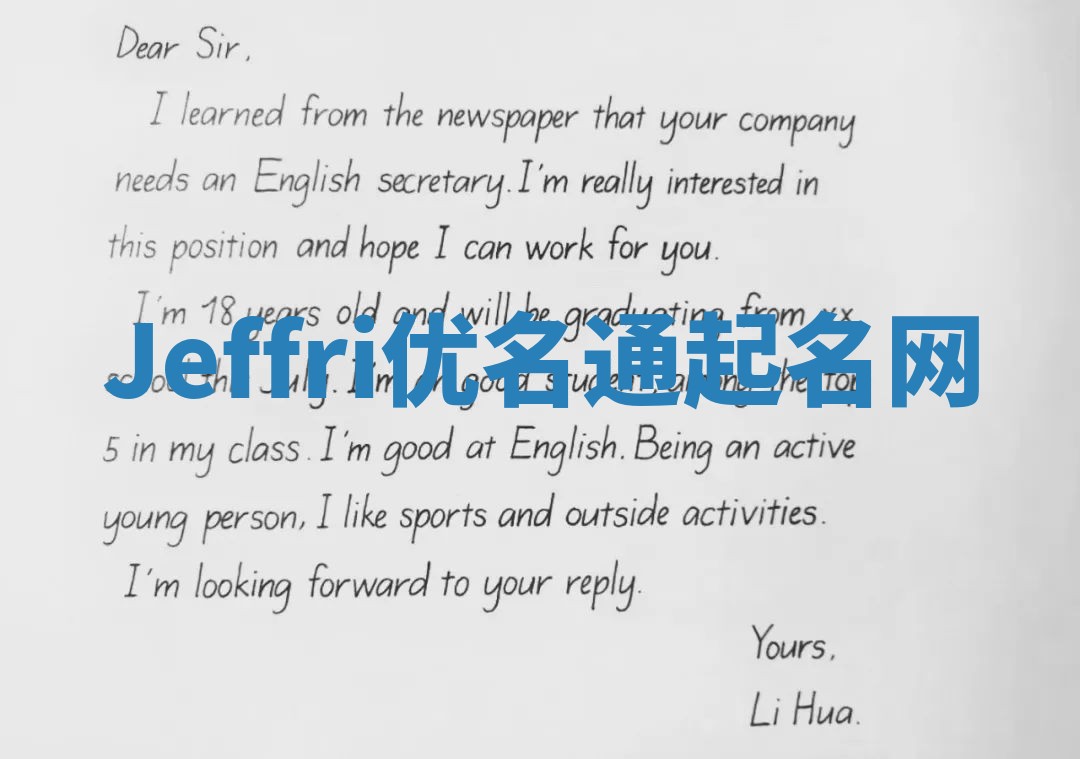 Dear Sir,
I learned from the newspaper that your company
needs an English secretary. I'm really interested in
this position and hope I can work for you.
I'm 18 years old and will be graduating from xx
Jeffri优名通起名网
school this July. I'm an good student, among the top
5 in my class. I'm good at English. Being an active
young person, I like sports and outside activities.
I'm looking forward to your reply.
Yours,
Li Hua.